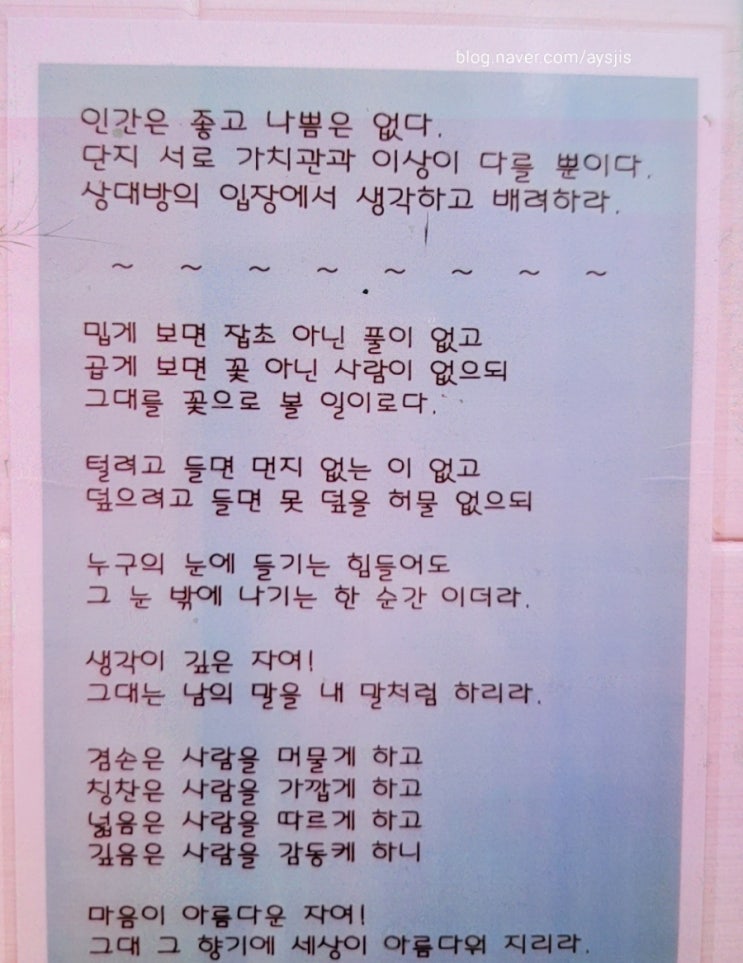 blog.naver.com/aysjis
인간은 좋고 나쁨은 없다.
단지 서로 가치관과 이상이 다를 뿐이다.
상대방의 입장에서 생각하고 배려하라.
~ ~ ~ ~ ~ ~ ~ ~
밉게 보면 잡초 아닌 풀이 없고
곱게 보면 꽃 아닌 사람이 없으되
그대를 꽃으로 볼 일이로다.
털려고 들면 먼지 없는 이 없고
덮으려고 들면 못 덮을 허물 없으되
누구의 눈에 들기는 힘들어도
그 눈 밖에 나기는 한 순간 이더라.
생각이 깊은 자여!
그대는 남의 말을 내 말처럼 하리라.
겸손은 사람을 머물게 하고
칭찬은 사람을 가깝게 하고
넓음은 사람을 따르게 하고
깊음은 사람을 감동케 하니
마음이 아름다운 자여!
그대 그 향기에 세상이 아름다워 지리라.